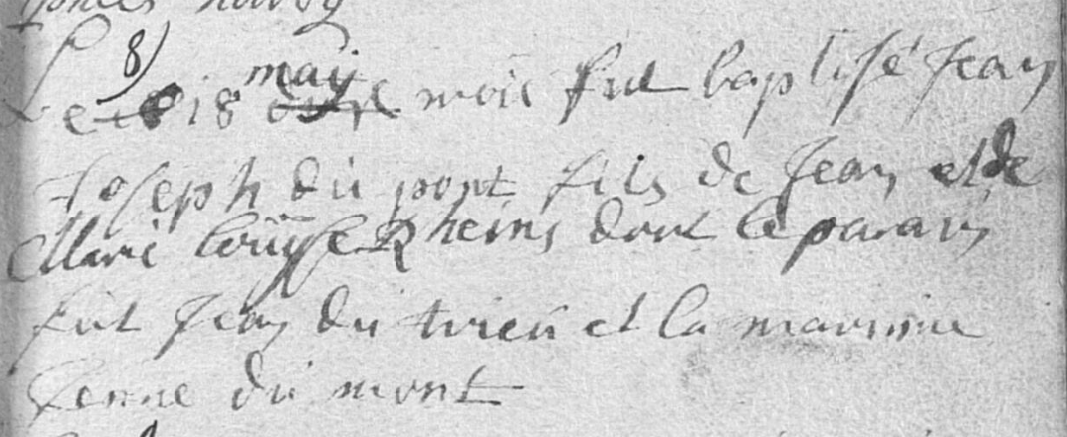 8)
may
Le 18 mois fut baptisé Jean
Joseph du pont fils de Jean et de
Marie louyse Rheins dont le parain
fut Jean du trieu et la marinne
Jenne du mont